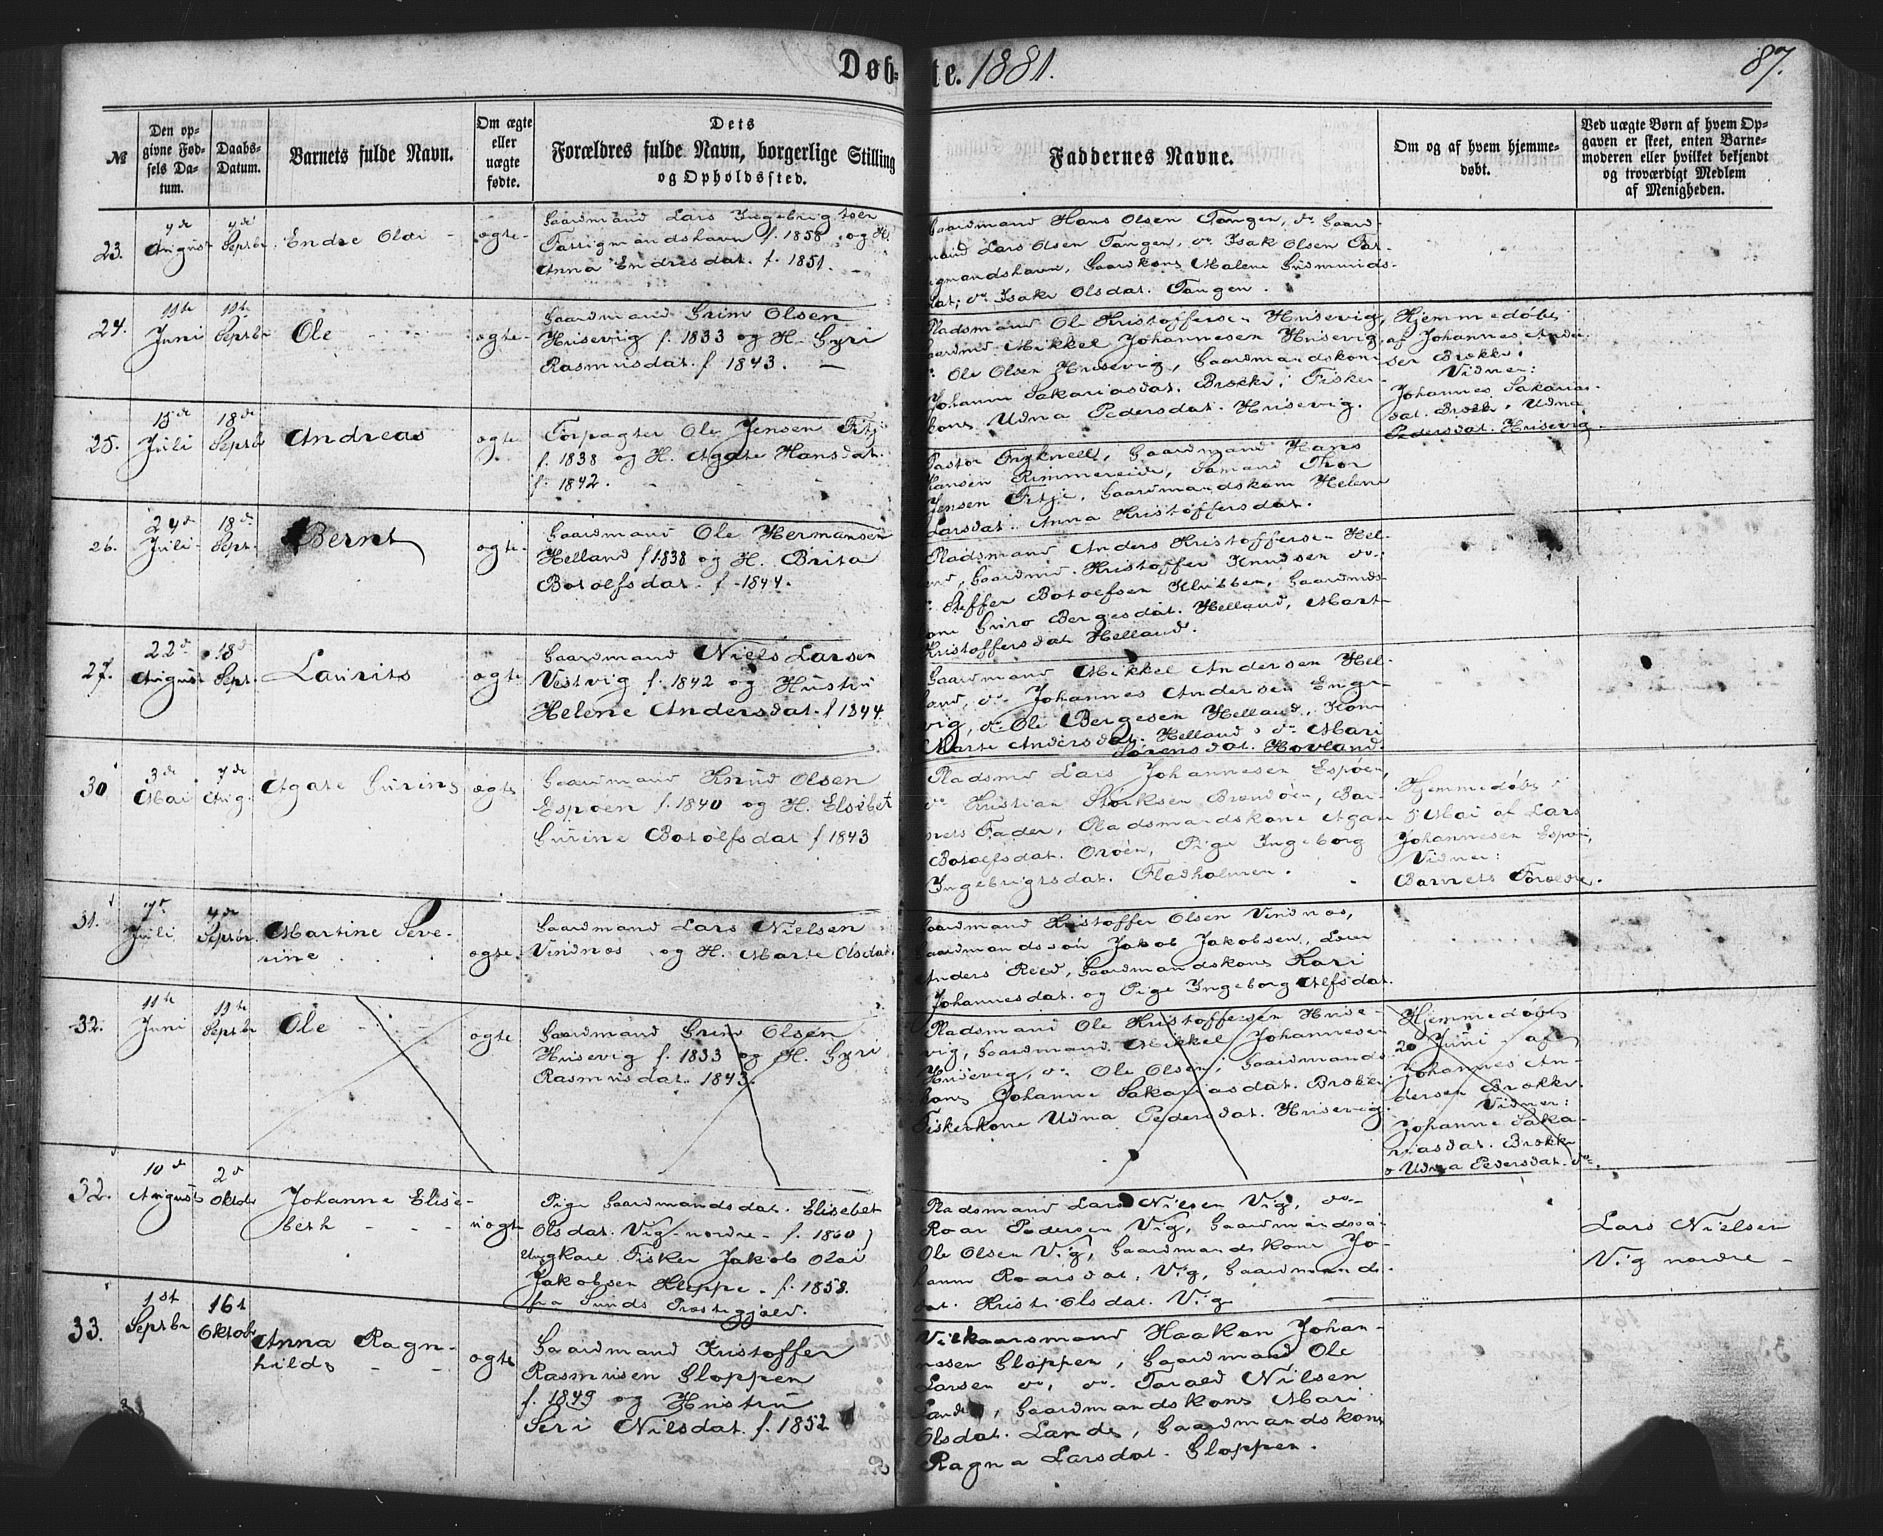 Døb-te. 1881.
87.
№
Den op-
givne Fød-
sels Da-
tum.
Daabs-
Datum.
Barnets fulde Navn.
Om ægte
eller
uægte
fødte.
Dets
Forældres fulde Navn, borgerlige Stilling
og Opholdssted.
Faddernes Navne.
Om og af hvem hjemme-
døbt.
Ved uægte Børn af hvem Op-
gaven er skeet, enten Barne-
moderen eller hvilket bekjendt
og troværdigt Medlem
af Menigheden.
23.
4de
August
4de
Septbr
Endre Olai
ægte
Gaardmand Lars Ingebrigtsen
Fattigmandshavn f. 1858 og H.
Anna Endresdat. f. 1851.
Gaardmand Hans Olsen Tangen, do Gaard-
mand Lars Olsen Tangen, do Isak Olsen Fat-
igmandshavn, Gaardkone Malene Gudmunds-
dat; do Isake Olsdat. Tangen.
24.
11te
Juni
11te
Septbr
Ole
ægte
Gaardmand Grim Olsen
Husevig f. 1833 og H. Gyri
Rasmusdat. f 1843.
Pladsmand Ole Kristoffersen Husevig,
Gaardmd Mikkel Johannesen Husevig,
do Ole Olsen Husevig, Gaardmandskone
Johanne Sakariasdat. Brække, Fisker-
kone Udna Pedersdat. Husevig.
Hjemmedøbt
af Johannes Ander-
sen Brække.
Vidner:
Johannes Sakarias-
dat. Brække, Udna
Pedersdat. Husevig.
25.
15de
Juli
18de
Septbr
Andreas
ægte
Forpagter Ole Jensen Fitje
f. 1838 og H. Agate Hansdat.
f. 1842.
Pastor Fryknell, Gaardmand Hans
Hansen Rimmereide, Sømand Thor
Jensen Fitje, Gaardmandskone Helene
Larsdat. Anna Kristoffersdat.
26.
24de
Juli
18de
Sept.
Bernt
ægte
Gaardmand Ole Hermansen
Helland f 1838 og H. Brita
Botolfsdat. f. 1844.
Pladsmand Anders Kristoffersen Hel-
land, Gaardmd. Kristoffer Knudsen do
do Steffer Botolfsen Klubben, Gaardmds-
kone Guro Bergesdat. Helland, Mart-
Kristoffersdat Helland.
27.
22de
August
18d
Sept.
Laurits
ægte
Gaardmand Niels Larsen
Vestvig f. 1842 og Hustru
Helene Andersdat. f 1844.
Gaardmand Mikkel Andersen Hel-
land, do Johannes Andersen Enge-
vig, do Ole Bergesen Helland, Kone
Marte Andersdat. Helland, do Mari
Sørensdat. Hovland.
30
3de
Mai
7de
Aug.
Agate Gurine
ægte
Gaardmand Knud Olsen
Espøen f. 1840 og H. Elsebet
Gurine Botolfsdat f 1843
Pladsmd Lars Johannesen Espøen,
do Kristian Størksen Brandøen, Bar-
nets Fader, Pladsmandskone Agate
Botolfsdat. Orøen, Pige Ingeborg
Ingebrigtsdat. Fladholmen.
Hjemmedøbt
5 Mai af Lars
Johannesen Espøen,
Vidner:
Barnets Forældre.
31.
7de
Juli
4de
Septbr.
Martine Seve-
rine
ægte
Gaardmand Lars Nielsen
Vindnæs og H. Marte Olsdat.
Gaardmand Kristoffer Olsen Vindnæs,
Gaardmandssøn Jakob Jakobsen,
Anders Reed, Gaardmandskone Kari
Johannesdat. og Pige Ingeborg Alfsdat.
32.
11te
Juni
11te
Septbr
Ole
ægte
Gaardmand Grim Olsen
Husevig f. 1833 og H. Gyri
Rasmusdat. 1843.
Pladsmand Ole Kristoffersen Huse-
vig, Gaardmand Mikkel Johannesen
Husevig, do Ole Olsen, Gaardmands-
kone Johanne Sakariasdat. Brække
Fiskerkone Udna Pedersdat. Husevig.
Hjemmedøbt
20 Juni af
Johannes An-
dersen Brække.
Vidner:
Johanne Saka-
riasdat. Brække
o Udna Pedersdat. do
32.
10de
August
2d
Oktob
Johanne Elise-
beth
uægte
Pige Gaardmandsdat. Elisebet
Olsdat. Vig nordre f. 1860)
Ungkarl Fisker Jakob Olai
Jakobsen Kleppe f. 1858.
fra Sunds Præstegjæld.
Pladsmand Lars Nielsen Vig, do
Roar Pedersen Vig, Gaardmandssøn
Ole Olsen Vig, Gaardmandskone Jo-
hanne Roarsdat. Vig, Gaardmands-
dat. Kristi Olsdat. Vig
Lars Nielsen
Vig nordre
33.
1st
Septbr
16t
Oktob
Anna Ragn-
hilds
ægte
Gaardmand Kristoffer
Rasmusen Gloppen
f. 1849 og Hustru
Seri Nilsdat. f. 1852
Vilkaarsmand Haakon Johan-
nesen Gloppen, Gaardmand Ole
Larsen do, do Torald Nilsen
Lande, Gaardmandskone Mari
Olsdat. Lande, Gaardmandskone
Ragna Larsdat. Gloppen.